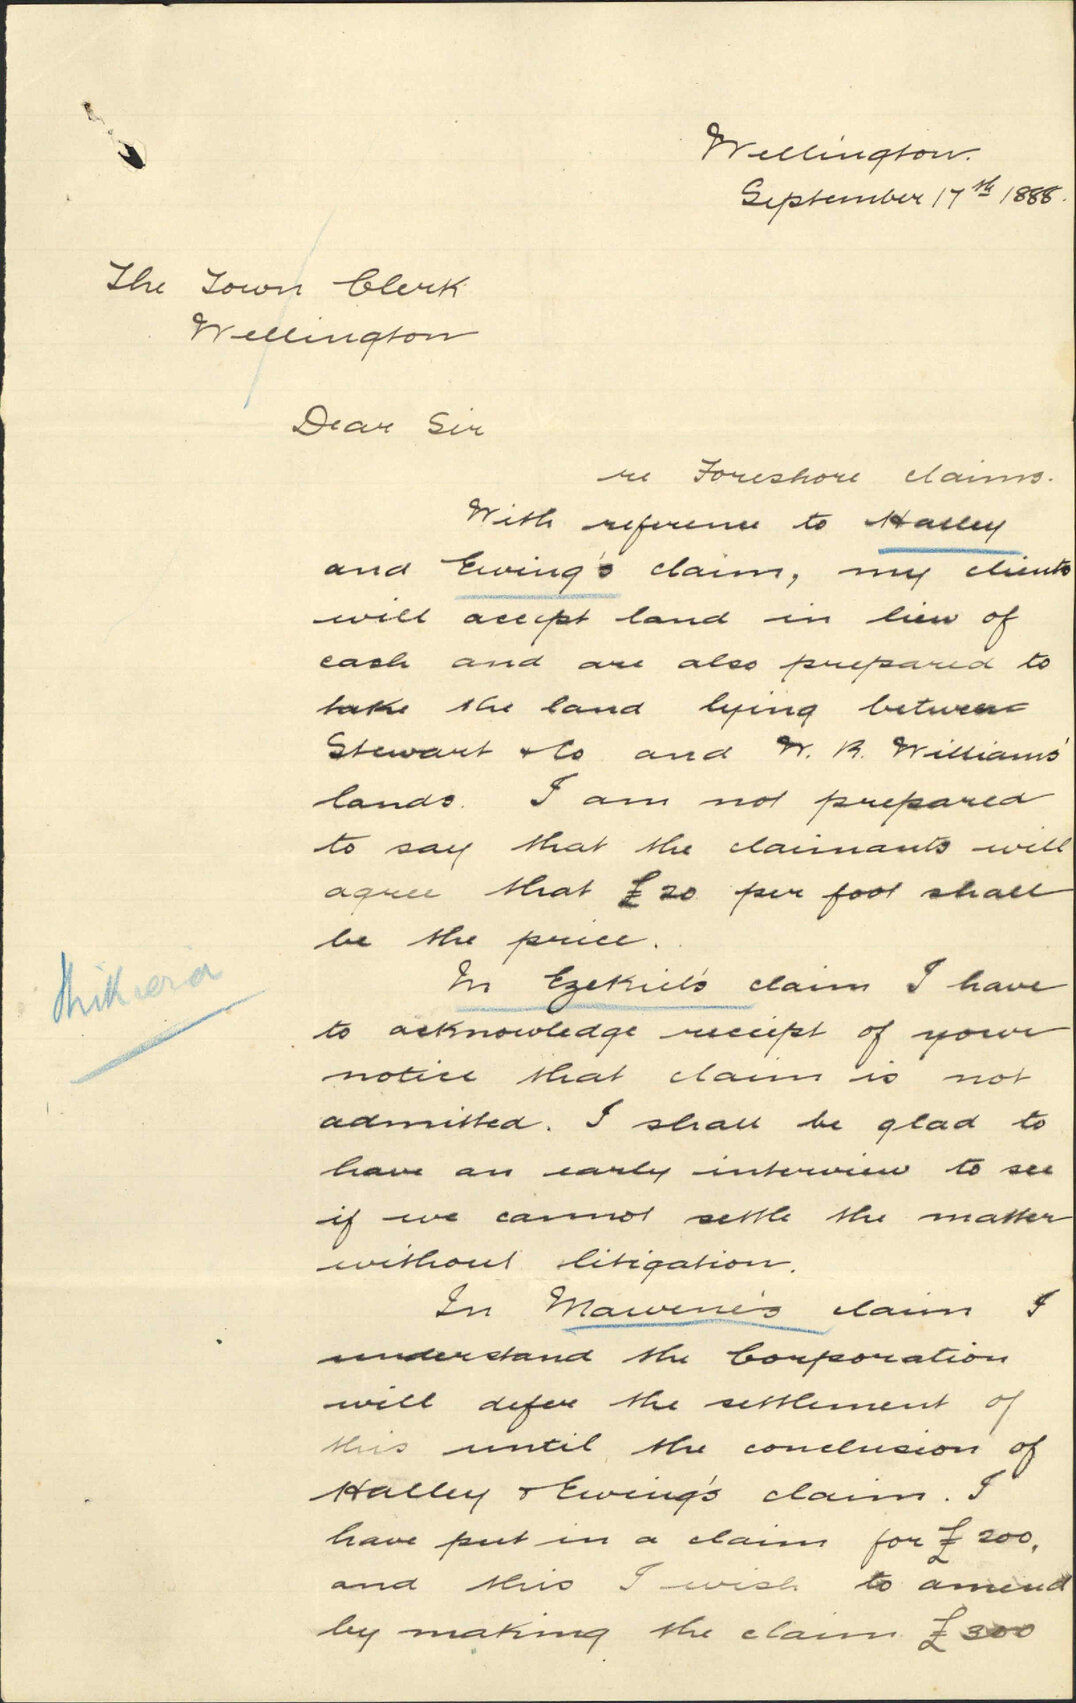 Wellington.
September 17th 1888.
The Town Clerk
Wellington
Dear Sir
re Foreshore claims.
With reference to Halley
and Ewing's claim, my clients
will accept land in lieu of
cash and are also prepared to
take the land lying between
Stewart & Co and W. R. Williams'
lands. I am not prepared
to say that the claimants will
agree that £20 per foot shall
be the price.
In Ezekiel's claim I have
to acknowledge receipt of your
notice that claim is not
admitted. I shall be glad to
have an early interview to see
if we cannot settle the matter
without litigation.
In claim I
understand the Corporation
will defer the settlement of
this until the conclusion of
Halley & Ewing's claim. I
have put in a claim for £200,
and this I wish to amend
by making the claim £300